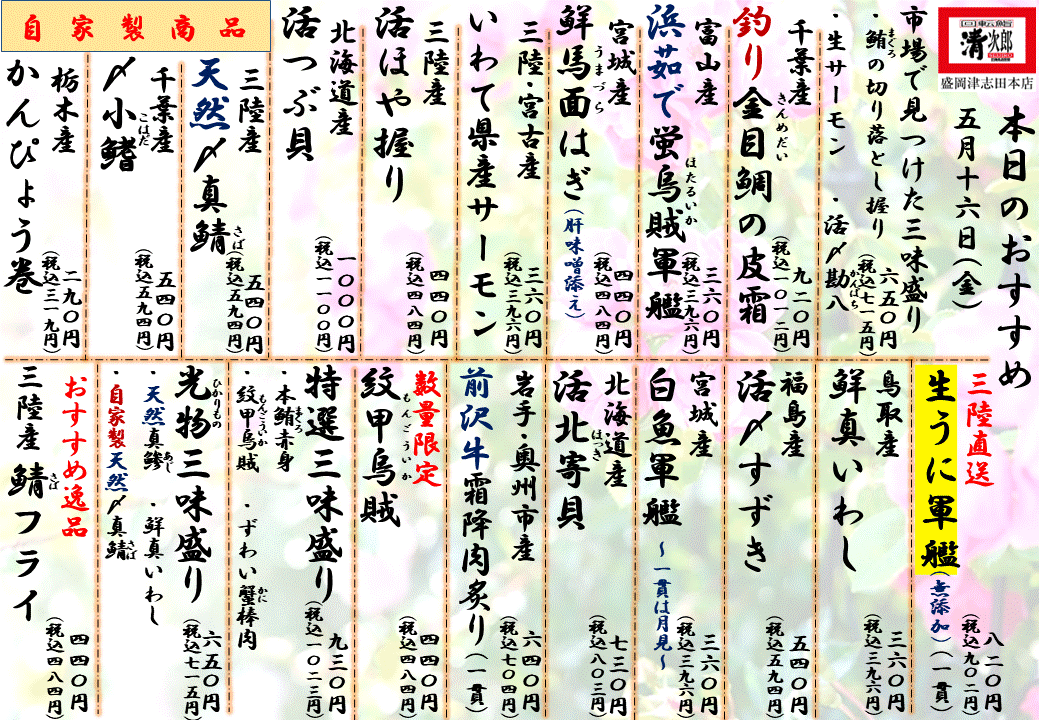 回転鮨
清次郎
盛岡津志田本店
本日のおすすめ
五月十六日(金)
市場で見つけた三味盛り
・鮪の切り落とし握り
まぐろ
・生サーモン ・活〆勘八
かんぱち
六五〇円
(税込七一五円)
千葉産
釣り金目鯛の皮霜
きんめだい
九二〇円
(税込一〇一二円)
富山産
浜茹で蛍烏賊軍艦
ほたるいか
三六〇円
(税込三九六円)
宮城産
鮮馬面はぎ(肝味噌添え)
うまづら
四四〇円
(税込四八四円)
三陸・宮古産
いわて県産サーモン
三六〇円
(税込三九六円)
三陸産
活ほや握り
四四〇円
(税込四八四円)
北海道産
活つぶ貝
一〇〇〇円
(税込一一〇〇円)
自家製商品
三陸産
天然〆真鯖
さば
五四〇円
(税込五九四円)
千葉産
〆小鰭
こはだ
五四〇円
(税込五九四円)
栃木産
かんぴょう巻
二九〇円
(税込三一九円)
三陸直送
生うに軍艦(無添加)(一貫)
八二〇円
(税込九〇二円)
鳥取産
鮮真いわし
三六〇円
(税込三九六円)
福島産
活〆すずき
五四〇円
(税込五九四円)
宮城産
白魚軍艦 ～一貫は月見～
三六〇円
(税込三九六円)
北海道産
活北寄貝
ほっき
七三〇円
(税込八〇三円)
岩手・奥州市産
前沢牛霜降肉炙り(一貫)
六四〇円
(税込七〇四円)
数量限定
紋甲烏賊
もんごういか
四四〇円
(税込四八四円)
特選三味盛り
・本鮪赤身
まぐろ
・紋甲烏賊 ・ずわい蟹棒肉
もんごういか かに
九三〇円
(税込一〇二三円)
光物三味盛り
ひかりもの
・天然真鯵 ・鮮真いわし
あじ
・自家製天然〆真鯖
さば
六五〇円
(税込七一五円)
おすすめ逸品
三陸産 鯖フライ
さば
四四〇円
(税込四八四円)